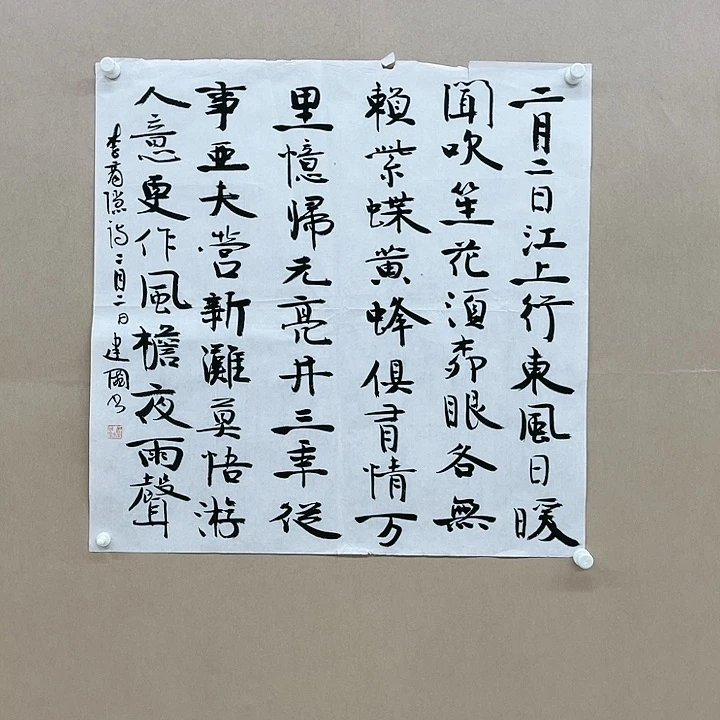 二月二日江上行東風日暖
聞吹笙花須柳眼各無
賴紫蝶黃蜂俱有情万
里憶歸元亮井三年從
事亞夫營新灘莫悟游
人意更作風檐夜雨聲
李商隱詩二月二日建國书